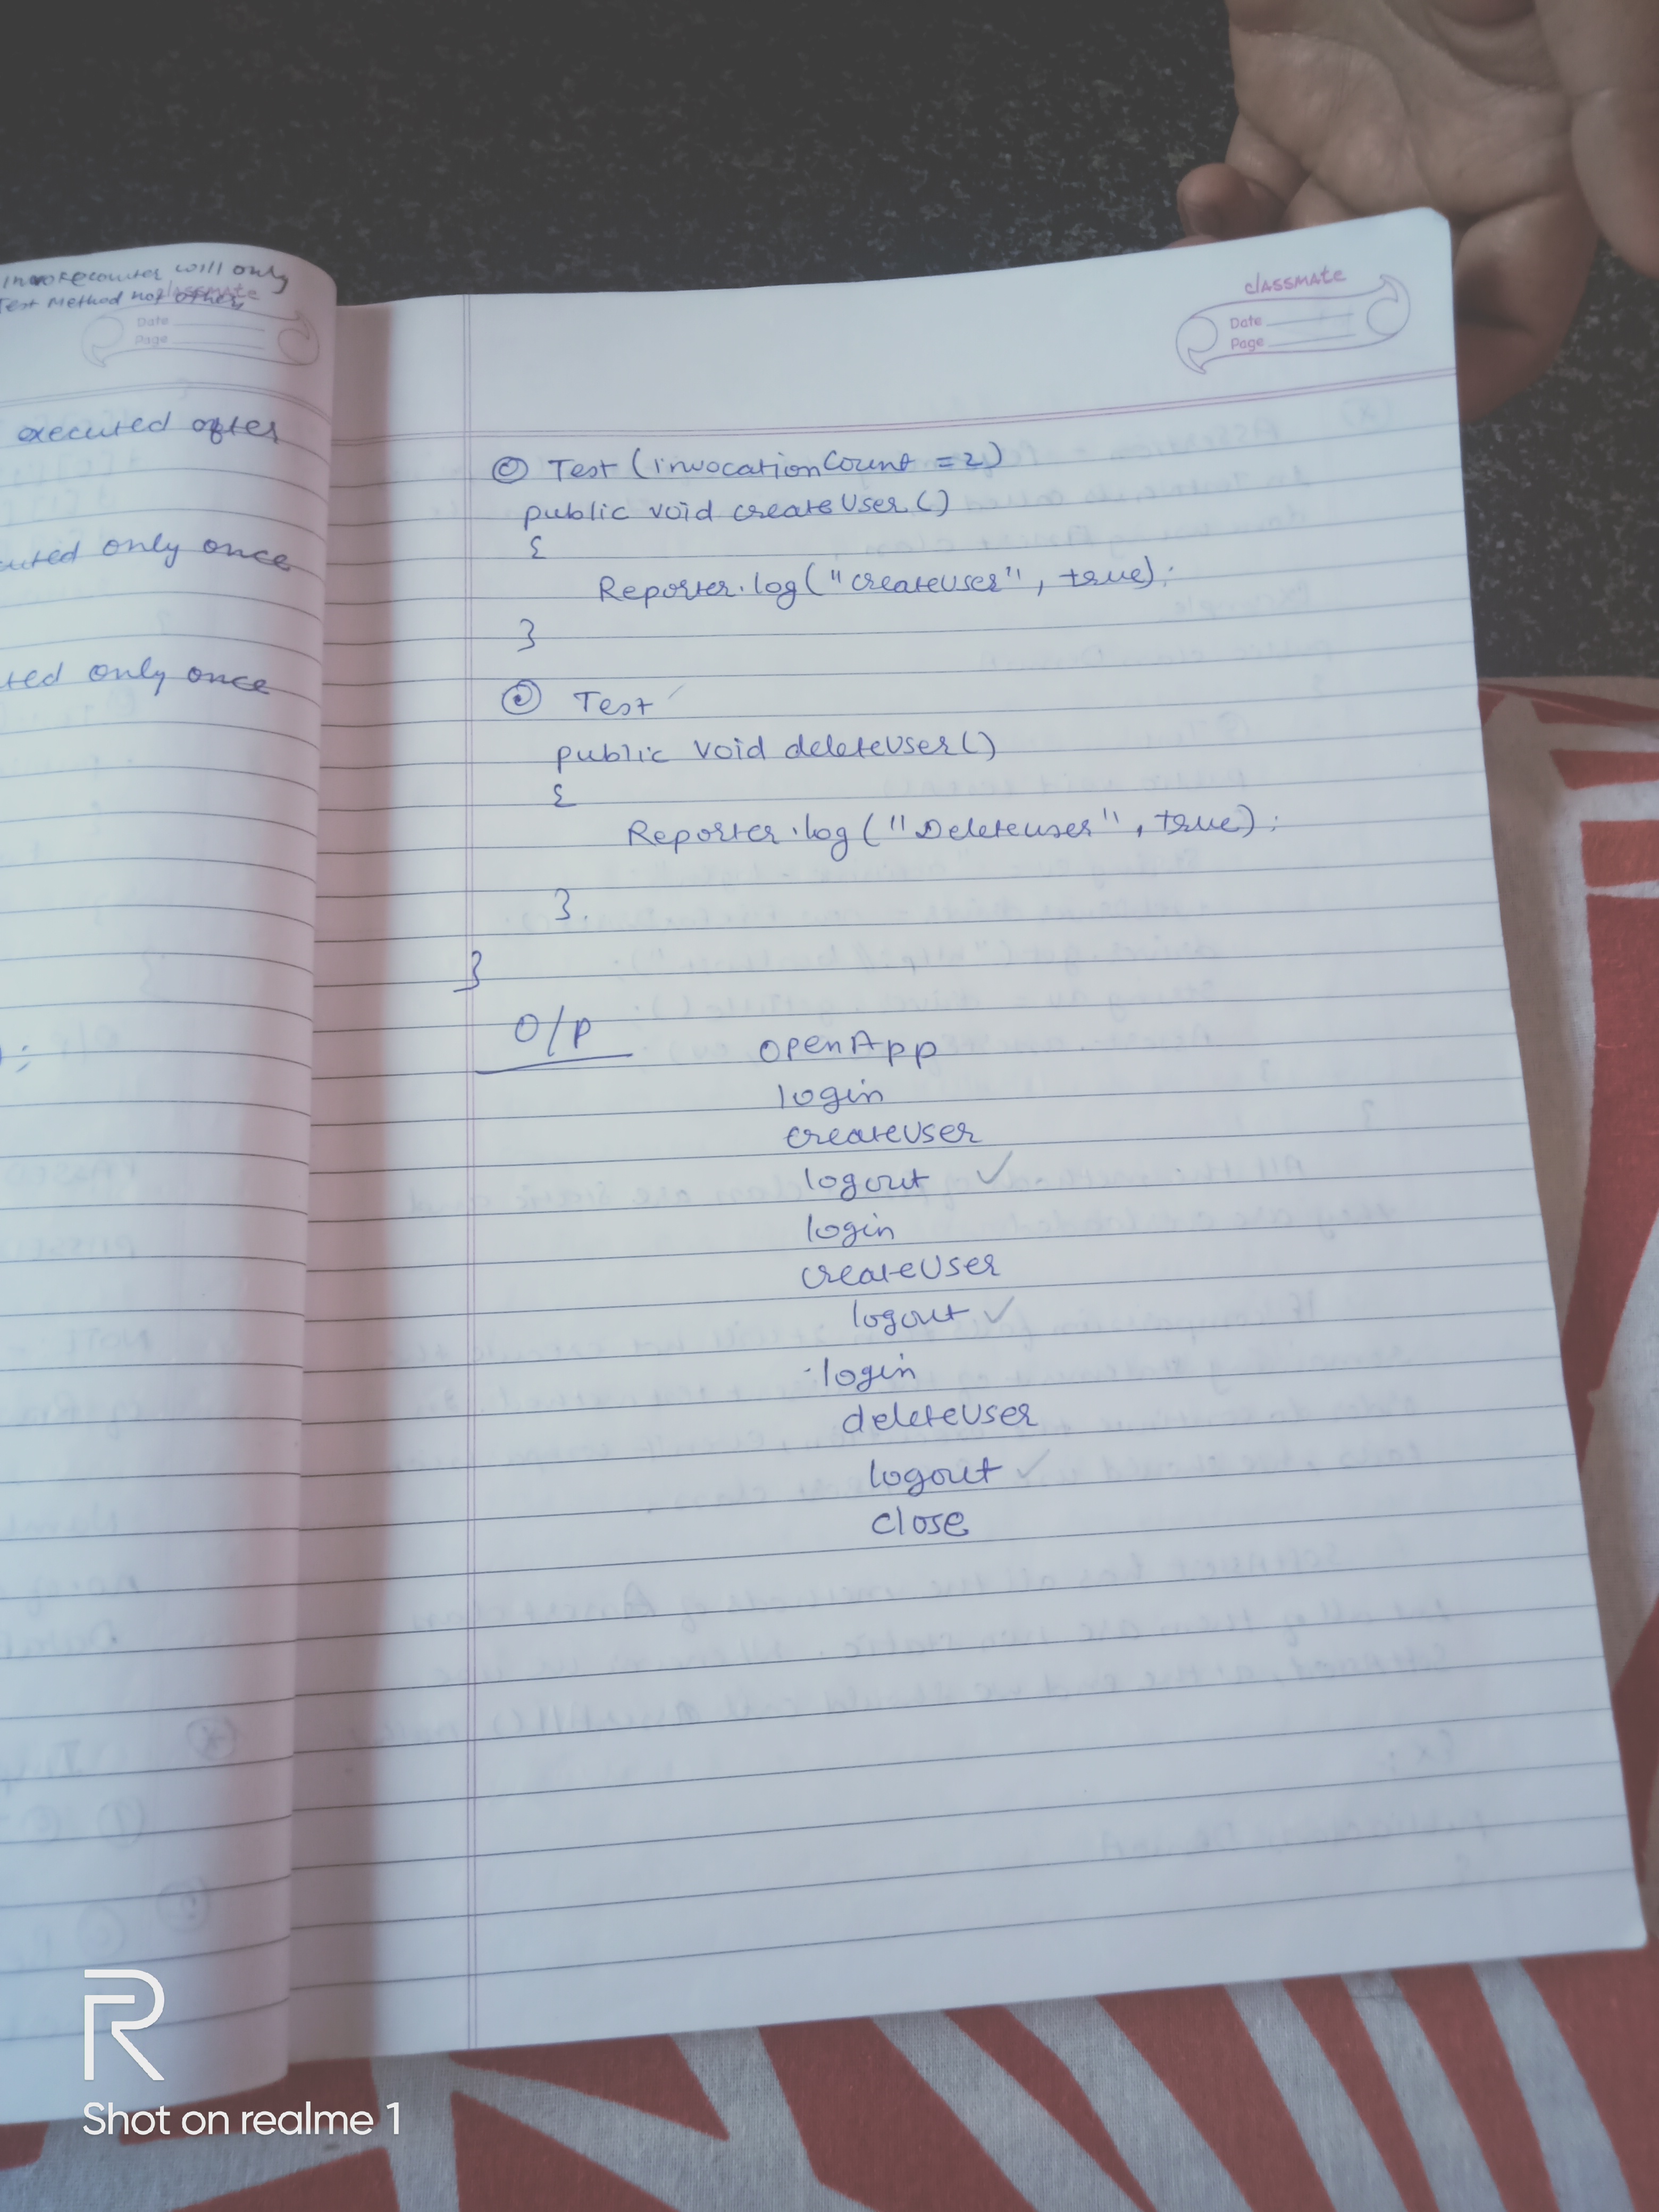 will only
Test Method not other
classmate
Date
Page
executed after
only once
only once
);
classmate
Date
Page
@ Test (invocationCount = 2)
public void createUser()
{
Reporter.log("createuser", true);
}
@ Test
public void deleteUser()
{
Reporter.log("Deleteuser", true);
}.
}
O/P
openApp
login
createuser
logout ✓
login
createUser
logout ✓
login
deleteUser
logout ✓
close
R
Shot on realme 1